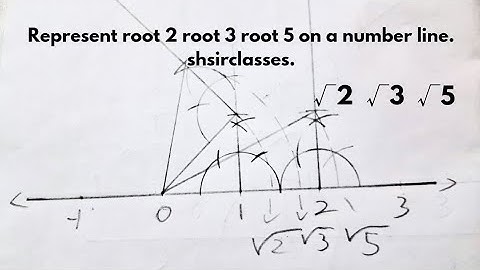 Represent root 2 root 3 root 5 on a number line.
shsirclasses.
√2 √3 √5
-1 0 1 2 3
√2 √3 √5